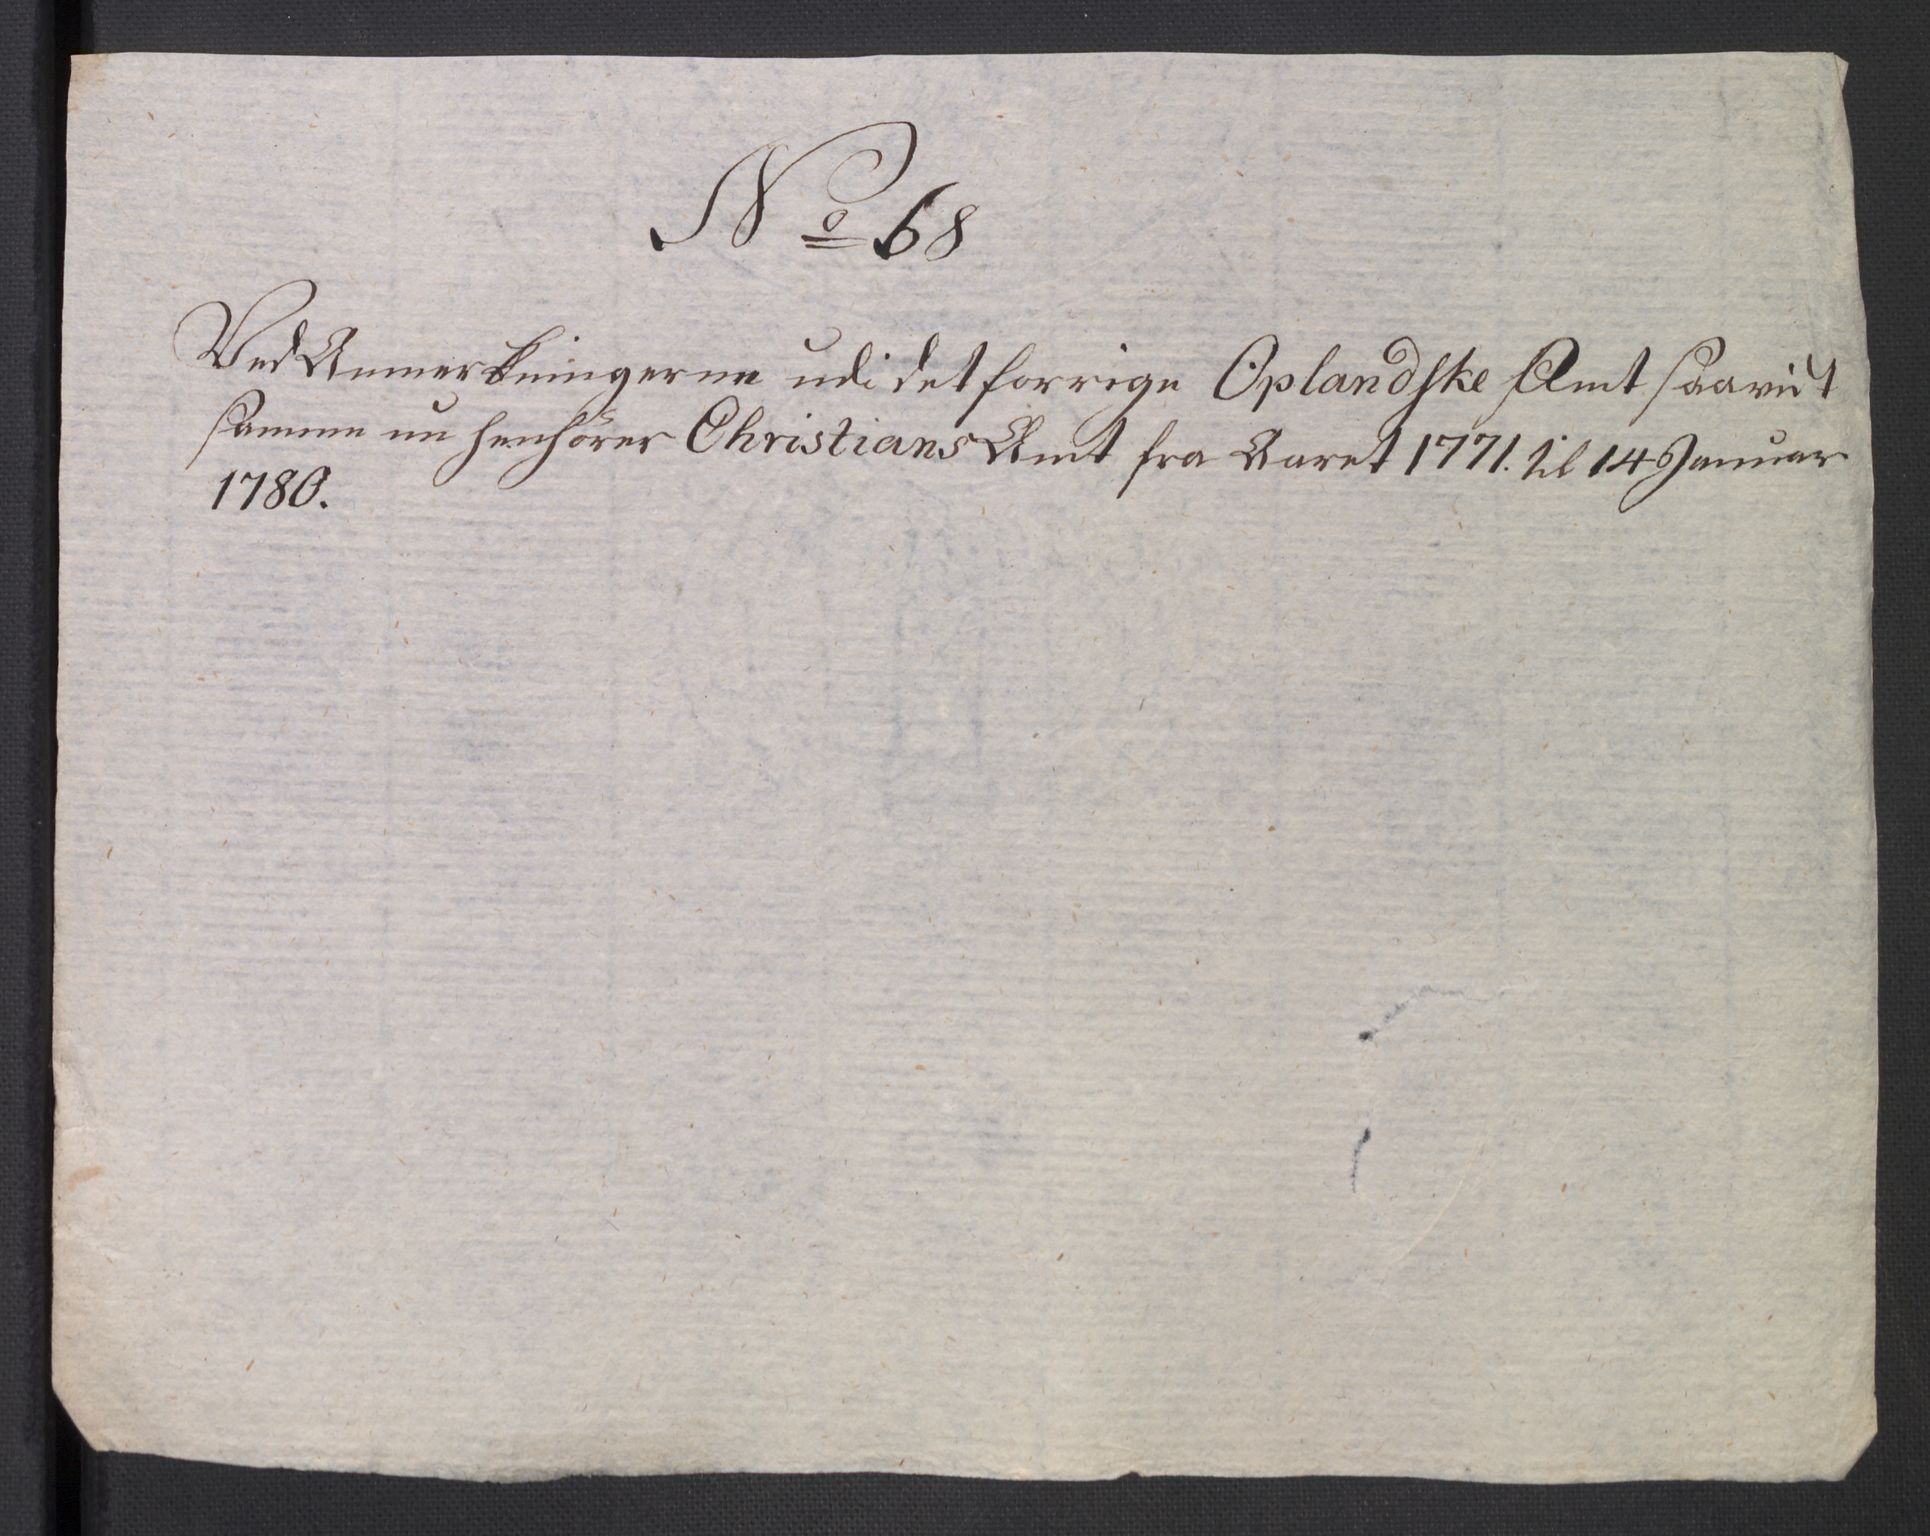 No 68
Ved Anmerkningerne udi det forrige Oplandske Amt saavidt
samme nu henhörer Christians Amt fra Aaret 1771. til 14 Januar
1780.